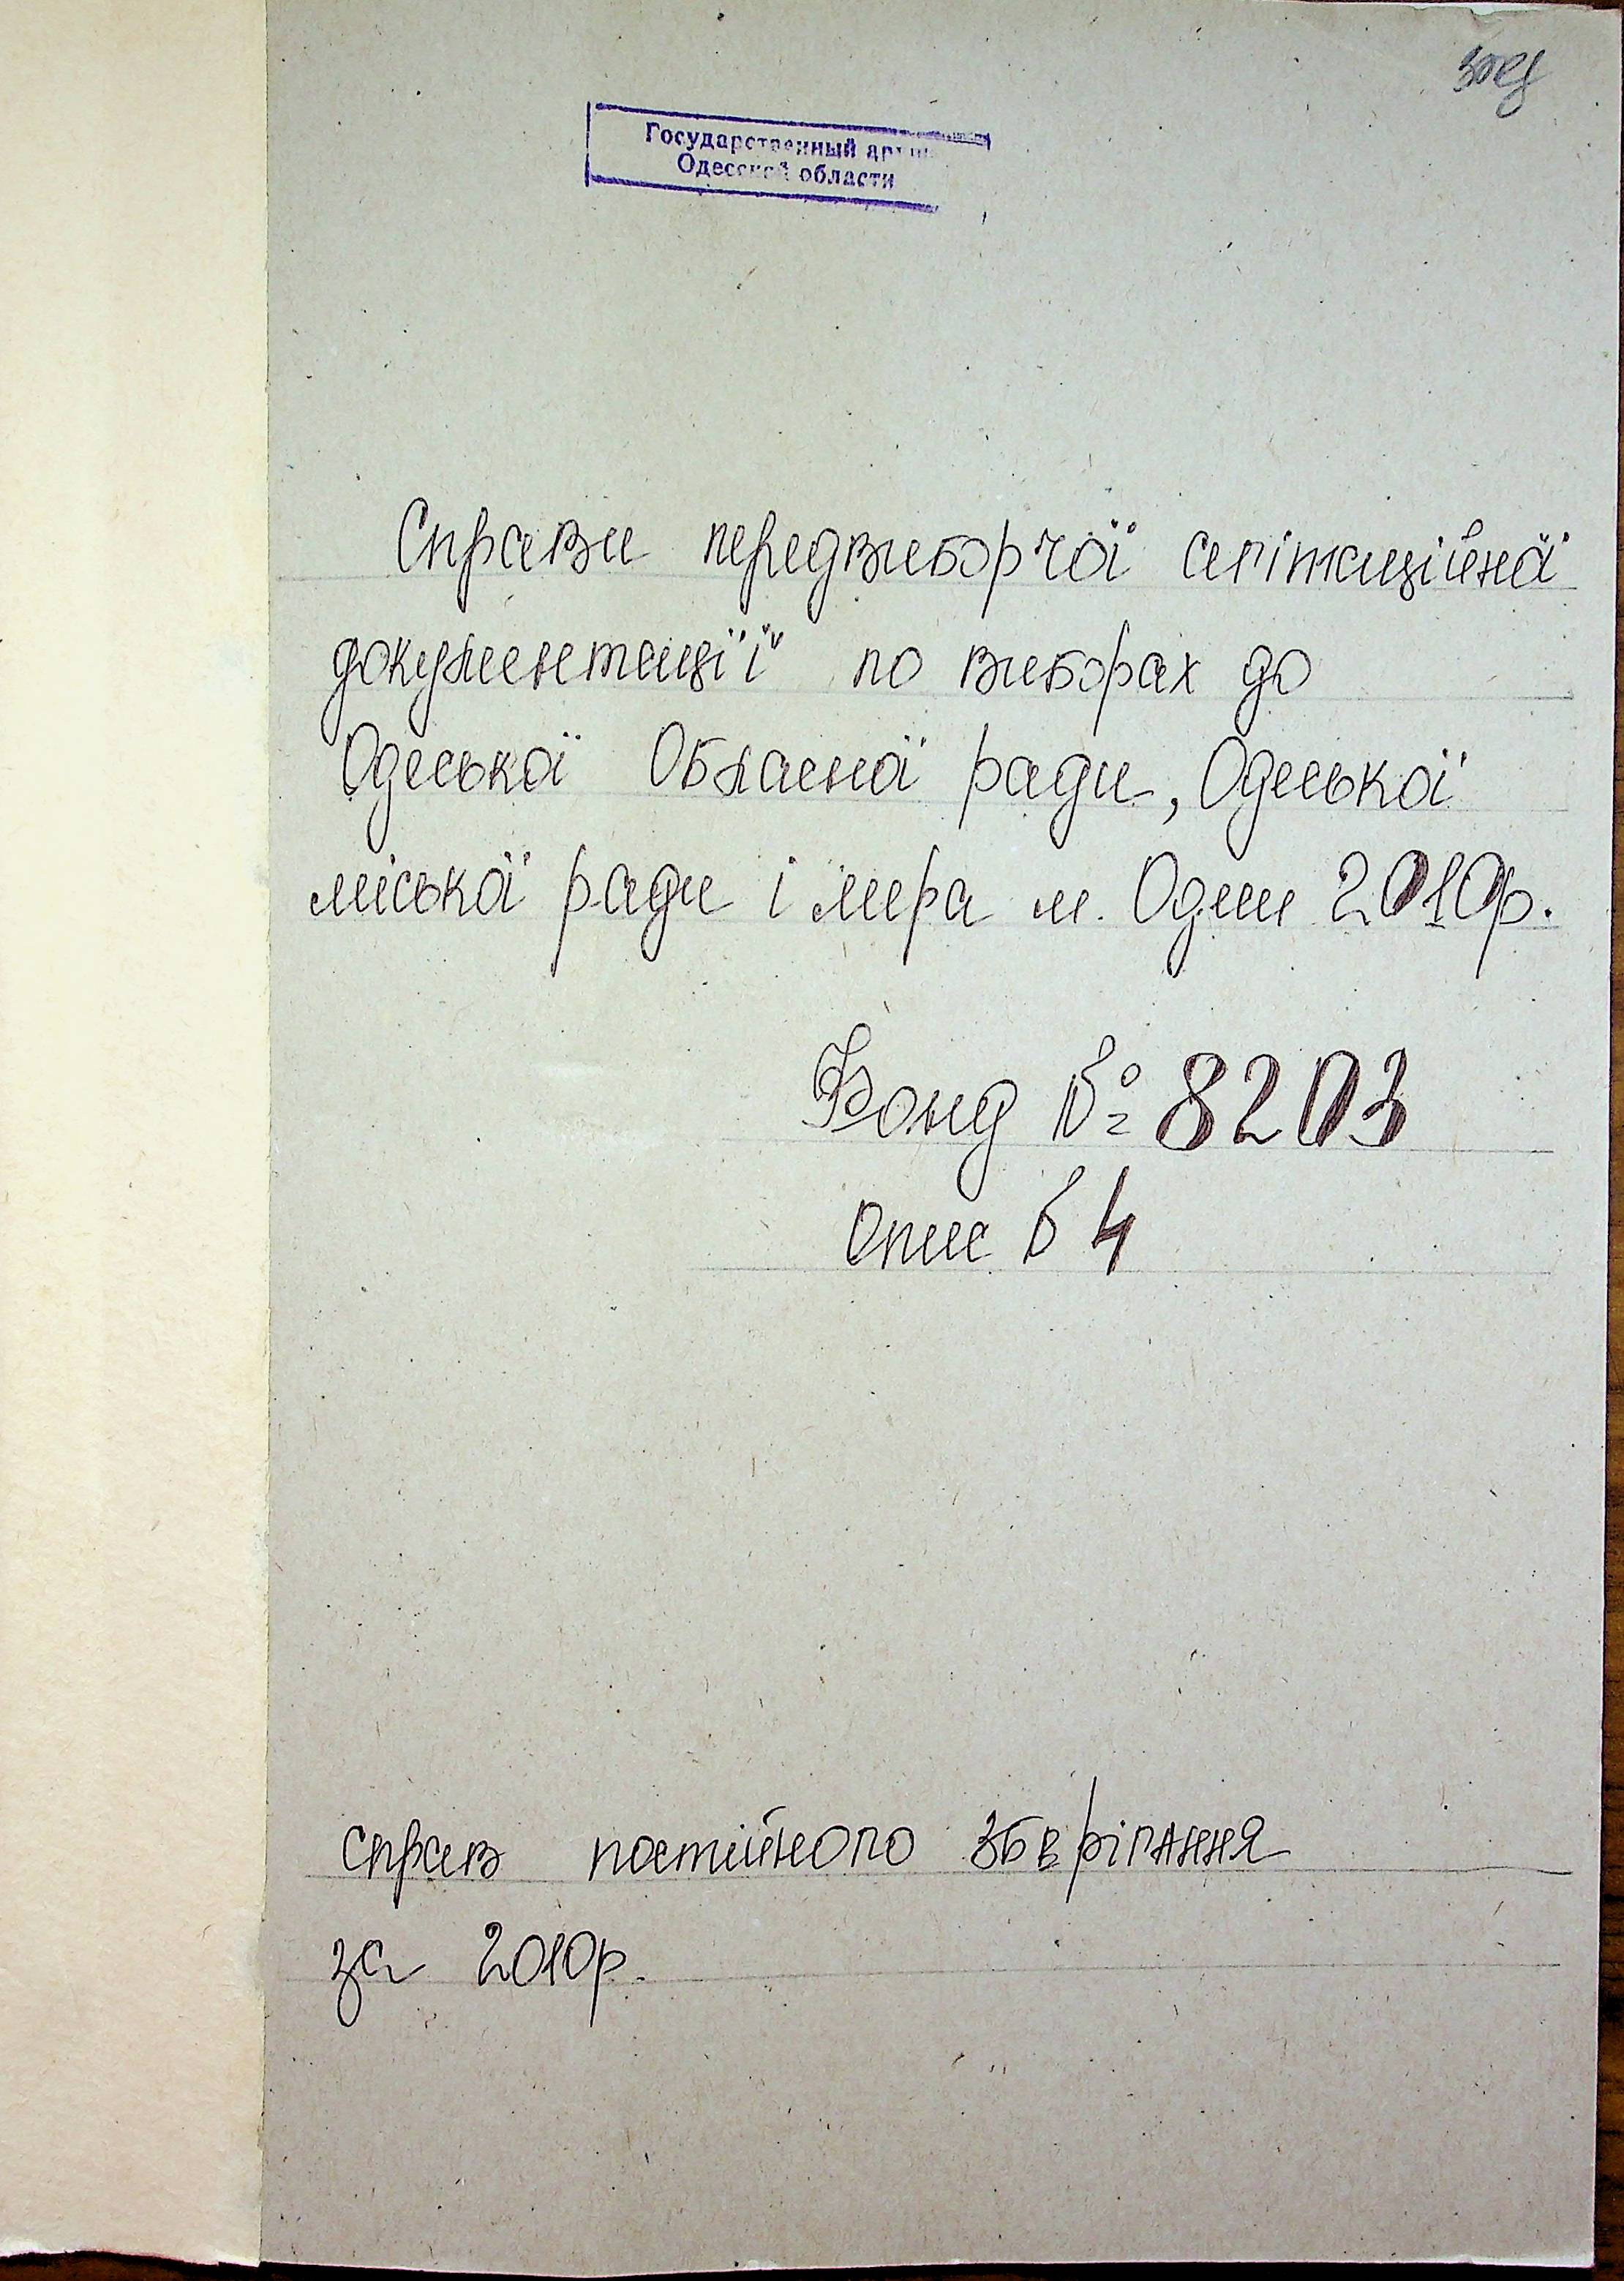 Государственный архив
Одесской области
Справи передвиборчої агітаційної
документації по виборах до
Одеської Обласної ради, Одеської
міської ради і мера м. Одеси 2010р.
Фонд № 8203
опис № 4
справ постійного зберігання
за 2010р.